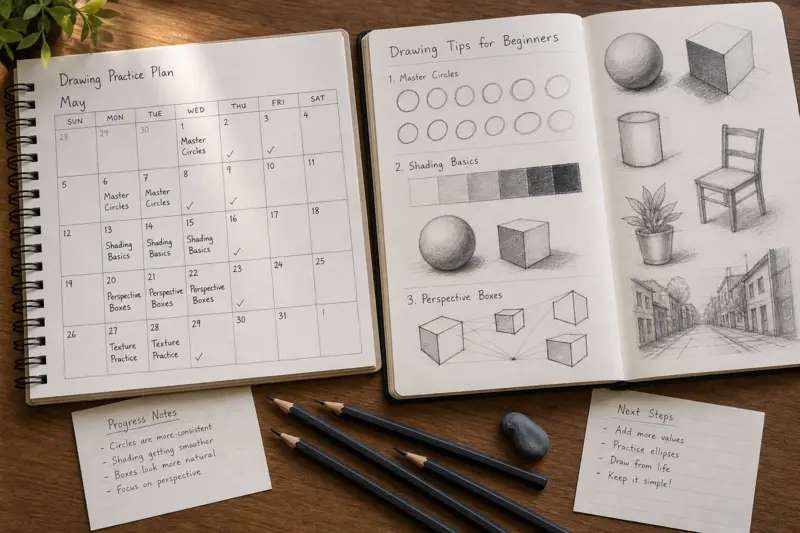 Drawing Practice Plan
May
SUN MON TUE WED THU FRI SAT
28 29 30 1 2 3 4
Master
Circles
5 6 7 8 9 10 11
Master Master
Circles Circles
12 13 14 15 16 17 18
Shading Shading Shading
Basics Basics Basics
19 20 21 22 23 24 25
Perspective Perspective Perspective
Boxes Boxes Boxes
26 27 28 29 30 31 1
Texture Texture
Practice Practice
Drawing Tips for Beginners
1. Master Circles
2. Shading Basics
3. Perspective Boxes
Progress Notes
- Circles are more consistent
- Shading getting smoother
- Boxes look more natural
- Focus on perspective
Next Steps
- Add more values
- Practice ellipses
- Draw from life
- Keep it simple!